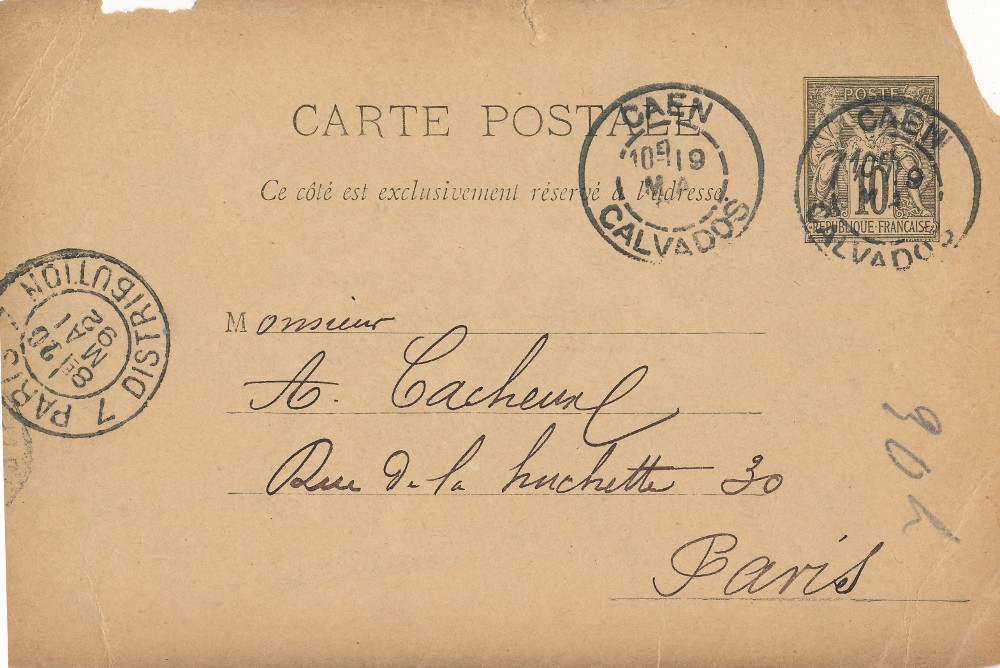 CARTE POSTALE
Ce côté est exclusivement réservé à l'adresse.
CAEN
10E 19
MA
CALVADOS
POSTE
10
REPUBLIQUE FRANÇAISE
CAEN
10E 9
CALVADOS
7 PARIS DISTRIBUTION
8E 20
MAI
92
Monsieur
A. Cacheux
Rue De la huchette 30
Paris